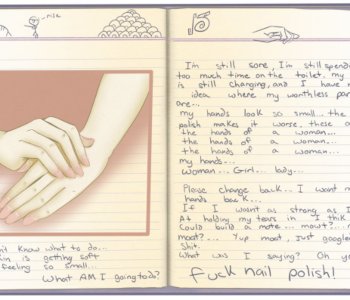 don't know what to do...
skin is getting soft
feeling so small...
What AM I going to do?
I'm still sore, I'm still spending
too much time on the toilet. my
is still changing, and I have n
idea where my worthless par
are...
my hands look so small... the
polish makes it worse, these a
the hands of a woman...
the hands of a woman...
the hands of a woman...
my hands...
Woman... Girl... lady...
Please change back... I want m
hands back...
If I want as strong as I
At holding my tears in I thik
Could build a mote... mowt?... m
moat?... Yup moat, just googled
Shit.
What was I saying? Oh y
Fuck nail polish!